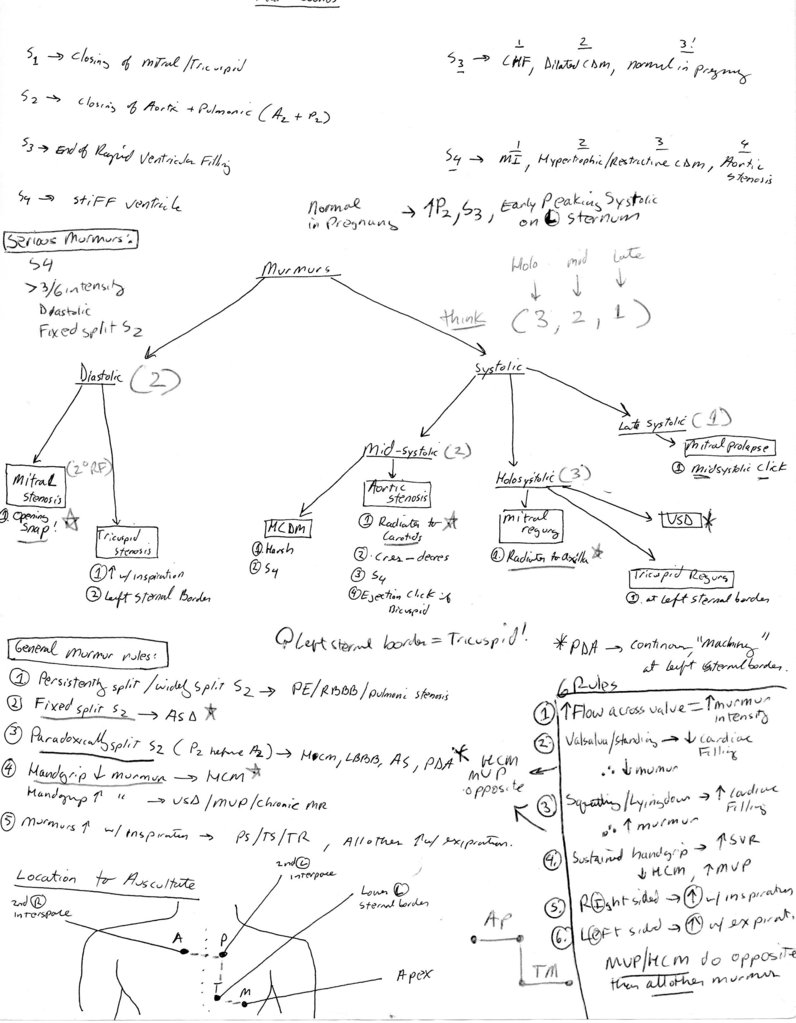 S1 → Closing of Mitral/Tricuspid
S2 → Closing of Aortic + Pulmonic (A2 + P2)
S3 → End of Rapid Ventricular Filling
S4 → Stiff ventricle
1 2 3!
S3 → CHF, Dilated CDM, normal in pregnancy
1 2 3 4
S4 → MI, Hypertrophic/Restrictive CDM, Aortic stenosis
Normal in Pregnancy → ↑P2, S3, Early Peaking Systolic on L sternum
Serious Murmurs:
S4
>3/6 intensity
Diastolic
Fixed split S2
Murmurs
Holo mid late
think (3, 2, 1)
Diastolic (2)
Systolic
Mitral stenosis (2° RF)
① Opening Snap! ☆
Tricuspid stenosis
① ↑ w/ inspiration
② Left Sternal Border
Mid-systolic (2)
HCDM
① Harsh
② S4
Aortic stenosis
① Radiates to Carotids ☆
② Cres-decres
③ S4
④ Ejection Click if Bicuspid
Holosystolic (3)
Mitral regurg
① Radiates to axilla ☆
VSD *
Tricuspid Regurg
① at Left sternal border
Late systolic (1)
Mitral prolapse
① midsystolic click
Left sternal border = Tricuspid!
* PDA → continuous, "Machinery"
at left sternal border.
General Murmur rules:
① Persistently split/widely split S2 → PE/RBBB/pulmonic stenosis
② Fixed split S2 → ASD ☆
③ Paradoxically split S2 (P2 before A2) → HOCM, LBBB, AS, PDA *
④ Handgrip ↓ murmur → HCM ☆
Handgrip ↑ " → VSD/MVP/chronic MR
⑤ Murmurs ↑ w/ inspiration → PS/TS/TR, All other ↑ w/ expiration.
HCM
MVP
opposite
6 Rules
① ↑ Flow across valve = ↑ murmur intensity
② Valsalva/standing → ↓ cardiac Filling
∴ ↓ murmur
③ Squatting/Lying down → ↑ cardiac Filling
∴ ↑ murmur
④ Sustained handgrip → ↑ SVR
↓ HCM, ↑ MVP
⑤ Right sided → ↑ w/ inspiration
⑥ Left sided → ↑ w/ expirat.
MVP/HCM do opposite
than all other murmur
Location to Auscultate
2nd R interspace
2nd L interspace
Lower L sternal border
Apex
A P
T M
AP
TM